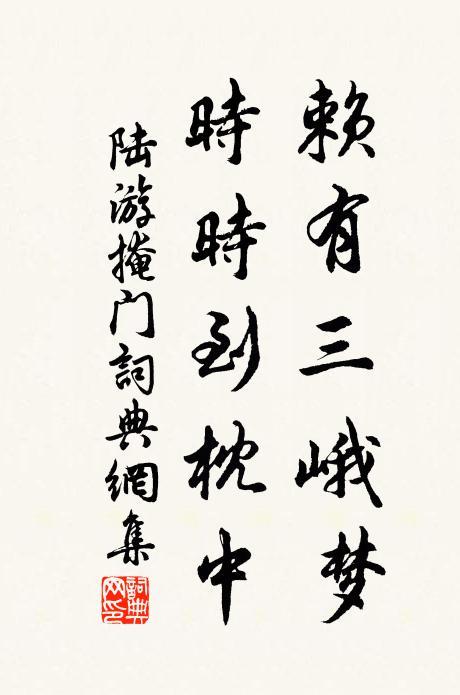 赖有三峨梦
時時到枕中
陆游掩门詞典網集
詞典
网印